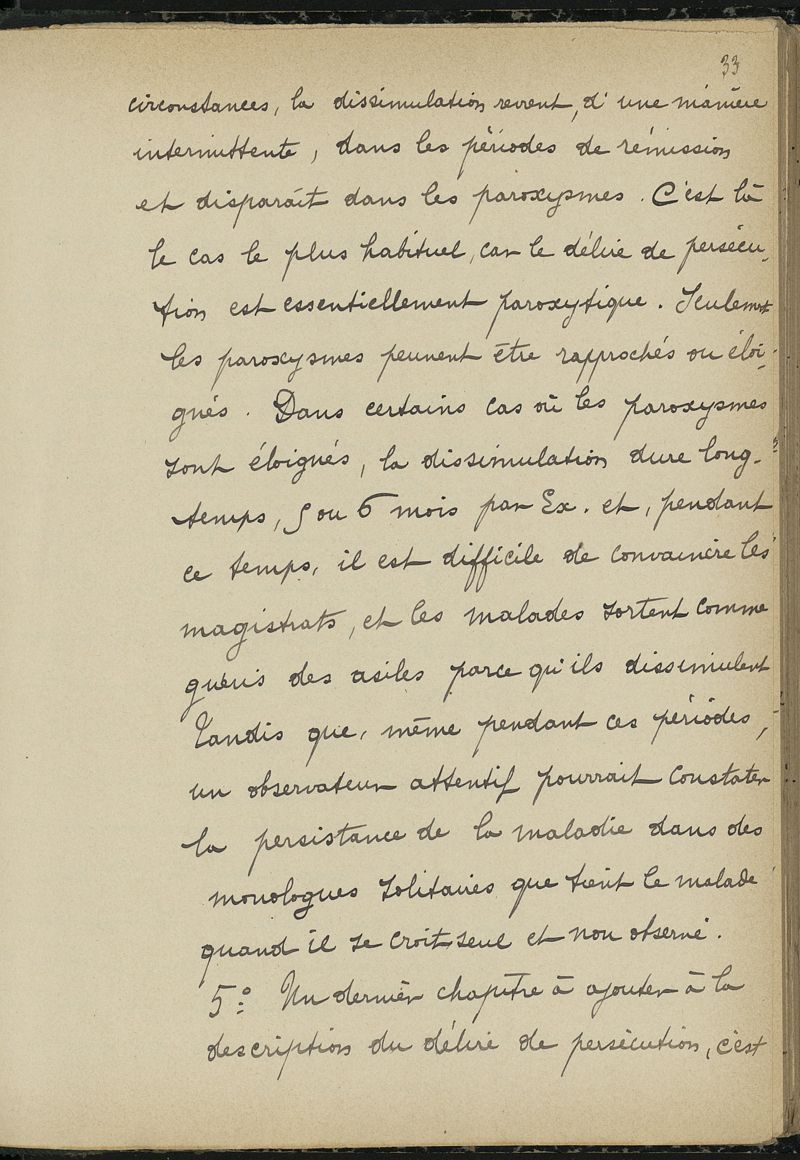 33
circonstances, la dissimulation revient, d'une manière
intermittente, dans les périodes de rémission
et disparaît dans les paroxysmes. C'est là
le cas le plus habituel, car le délire de persécu-
tion est essentiellement paroxytique. Seulement
les paroxysmes peuvent être rapprochés ou éloi-
gnés. Dans certains cas où les paroxysmes
sont éloignés, la dissimulation dure long-
temps, 5 ou 6 mois par Ex. et, pendant
ce temps, il est difficile de convaincre les
magistrats, et les malades sortent comme
guéris des asiles parce qu'ils dissimulent
Tandis que, même pendant ces périodes,
un observateur attentif pourrait constater
la persistance de la maladie dans des
monologues solitaires que tient le malade
quand il se croit seul et non observé.
5° Un dernièr chapître à ajouter à la
description du délire de persécution, c'est